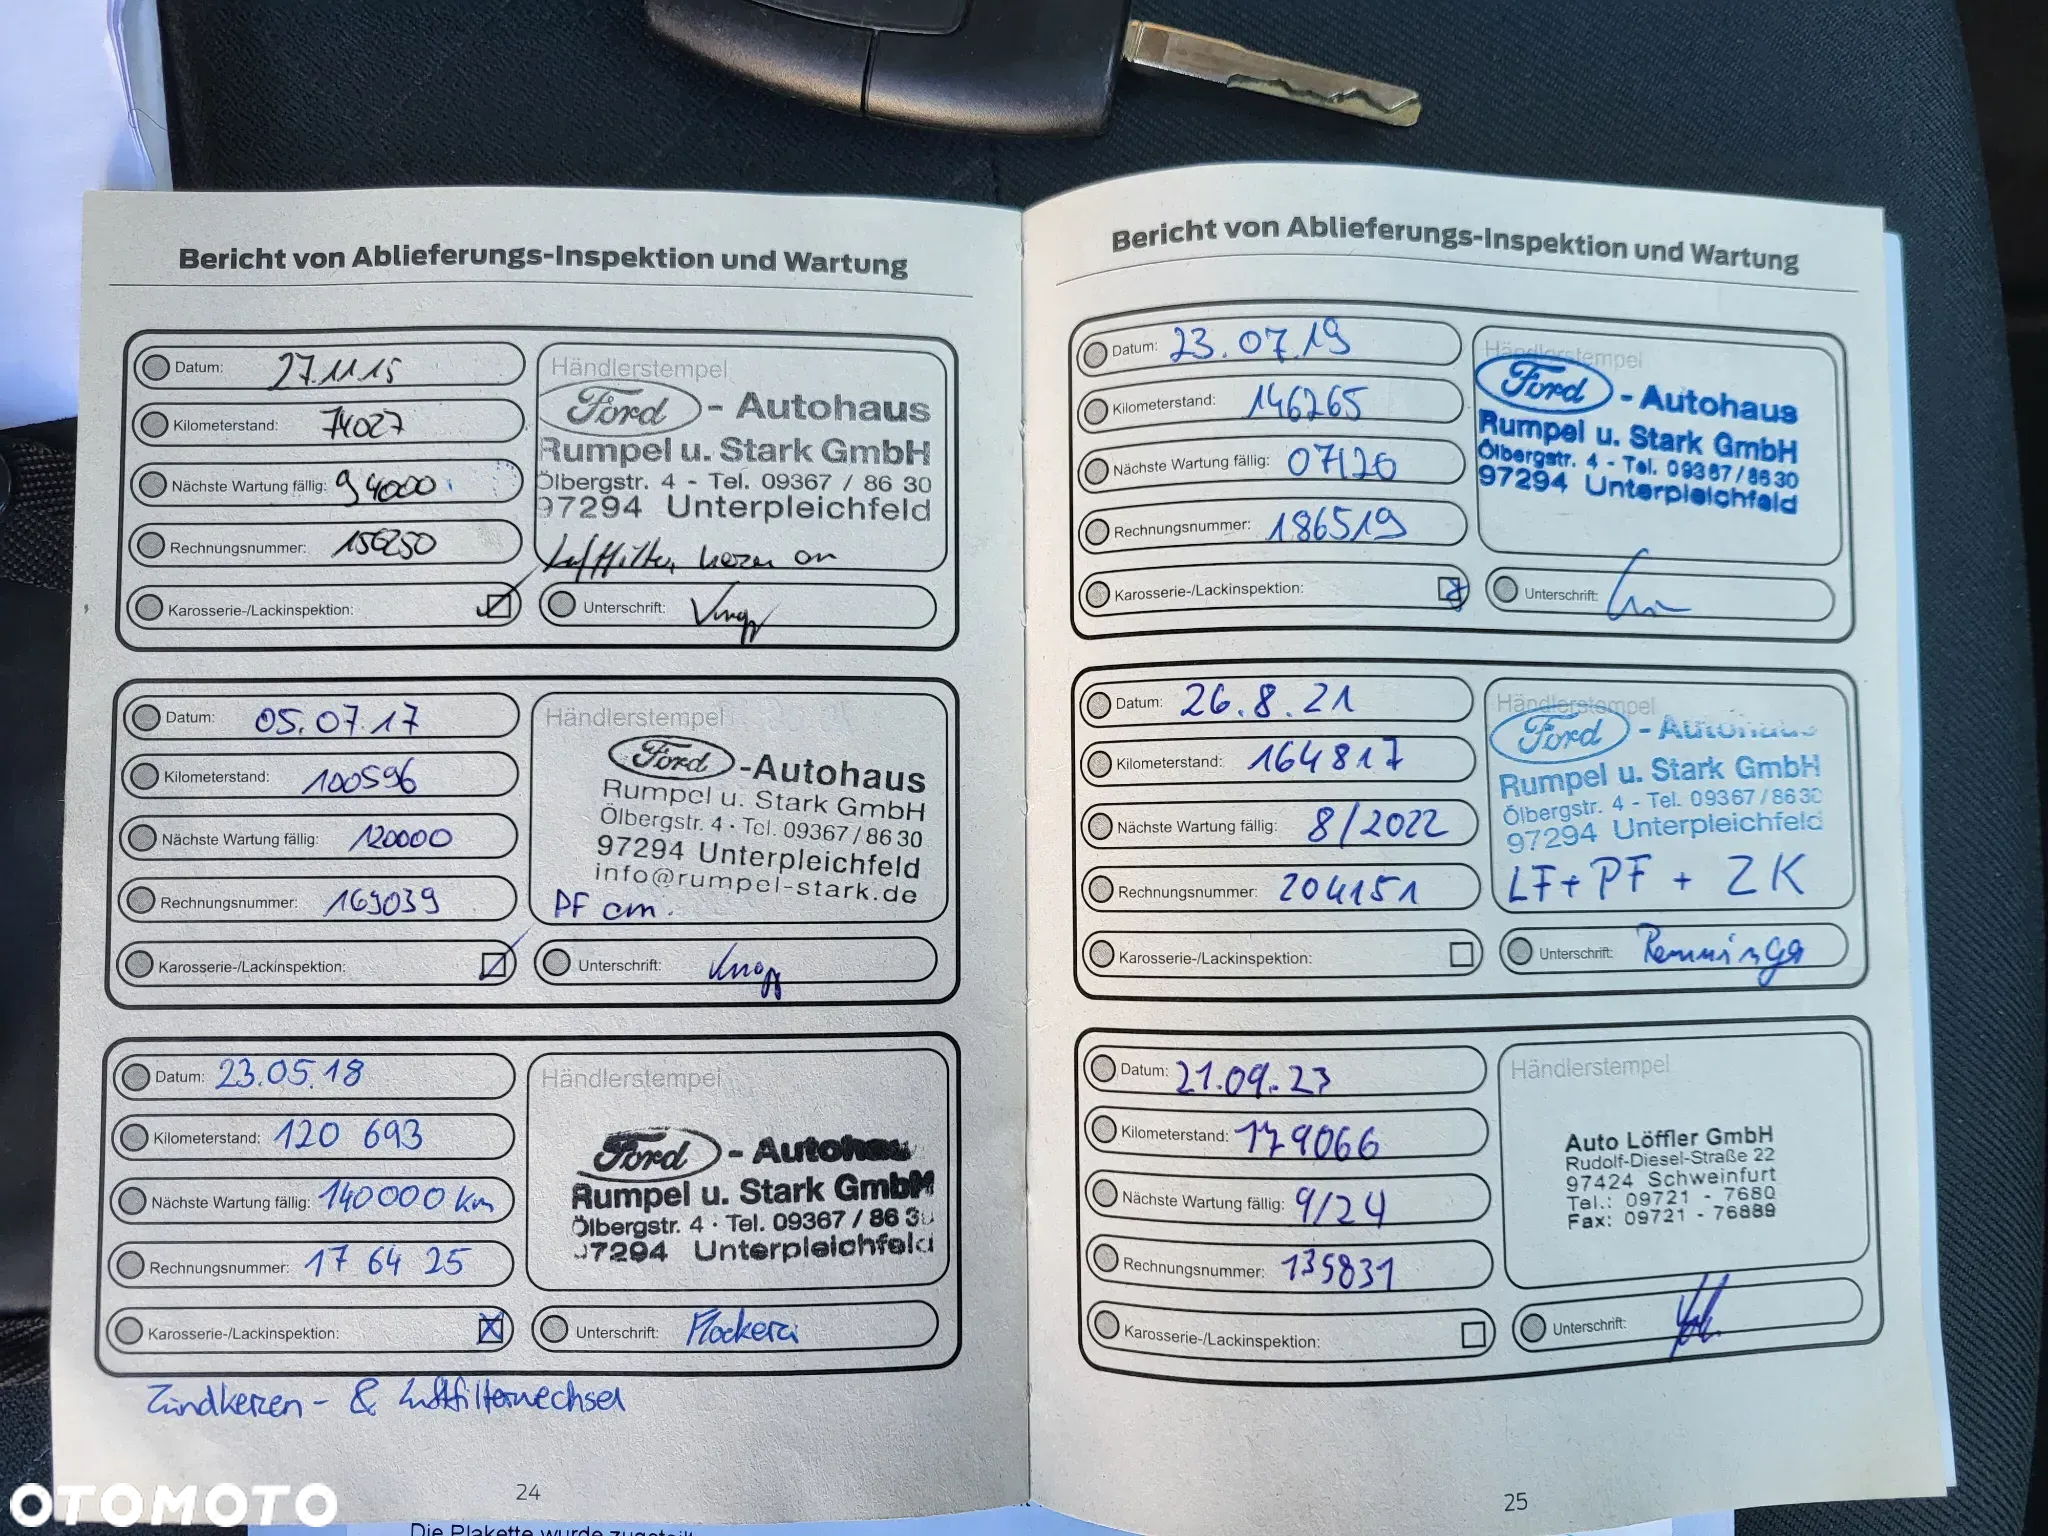 Bericht von Ablieferungs-Inspektion und Wartung
Datum: 27.11.15
Kilometerstand: 74027
Nächste Wartung fällig: 94000
Rechnungsnummer: 156250
Karosserie-/Lackinspektion:
Händlerstempel
Ford - Autohaus
Rumpel u. Stark GmbH
Ölbergstr. 4 - Tel. 09367 / 86 30
97294 Unterpleichfeld
Luftfilter, kerzen
Unterschrift:
Datum: 05.07.17
Kilometerstand: 100596
Nächste Wartung fällig: 120000
Rechnungsnummer: 169039
Karosserie-/Lackinspektion:
Händlerstempel
Ford -Autohaus
Rumpel u. Stark GmbH
Ölbergstr. 4 · Tel. 09367/8630
97294 Unterpleichfeld
info@rumpel-stark.de
PF
Unterschrift:
Datum: 23.05.18
Kilometerstand: 120 693
Nächste Wartung fällig: 140000 km
Rechnungsnummer: 17 64 25
Karosserie-/Lackinspektion:
Händlerstempel
Ford - Autohau
Rumpel u. Stark GmbH
Ölbergstr. 4 · Tel. 09367 / 86 30
97294 Unterpleichfeld
Unterschrift:
Zündkerzen- & Luftfilterwechsel
24
Bericht von Ablieferungs-Inspektion und Wartung
Datum: 23.07.19
Kilometerstand: 146265
Nächste Wartung fällig: 07/20
Rechnungsnummer: 186519
Karosserie-/Lackinspektion:
Händlerstempel
Ford - Autohaus
Rumpel u. Stark GmbH
Ölbergstr. 4 - Tel. 09367/8630
97294 Unterpleichfeld
Unterschrift:
Datum: 26.8.21
Kilometerstand: 164817
Nächste Wartung fällig: 8/2022
Rechnungsnummer: 204151
Karosserie-/Lackinspektion:
Händlerstempel
Ford - Autohaus
Rumpel u. Stark GmbH
Ölbergstr. 4 - Tel. 09367/8630
97294 Unterpleichfeld
LF + PF + ZK
Unterschrift:
Datum: 21.09.23
Kilometerstand: 179066
Nächste Wartung fällig: 9/24
Rechnungsnummer: 135831
Karosserie-/Lackinspektion:
Händlerstempel
Auto Löffler GmbH
Rudolf-Diesel-Straße 22
97424 Schweinfurt
Tel.: 09721 - 7680
Fax: 09721 - 76889
Unterschrift:
25
OTOMOTO
Die Plakette wurde zugeteilt